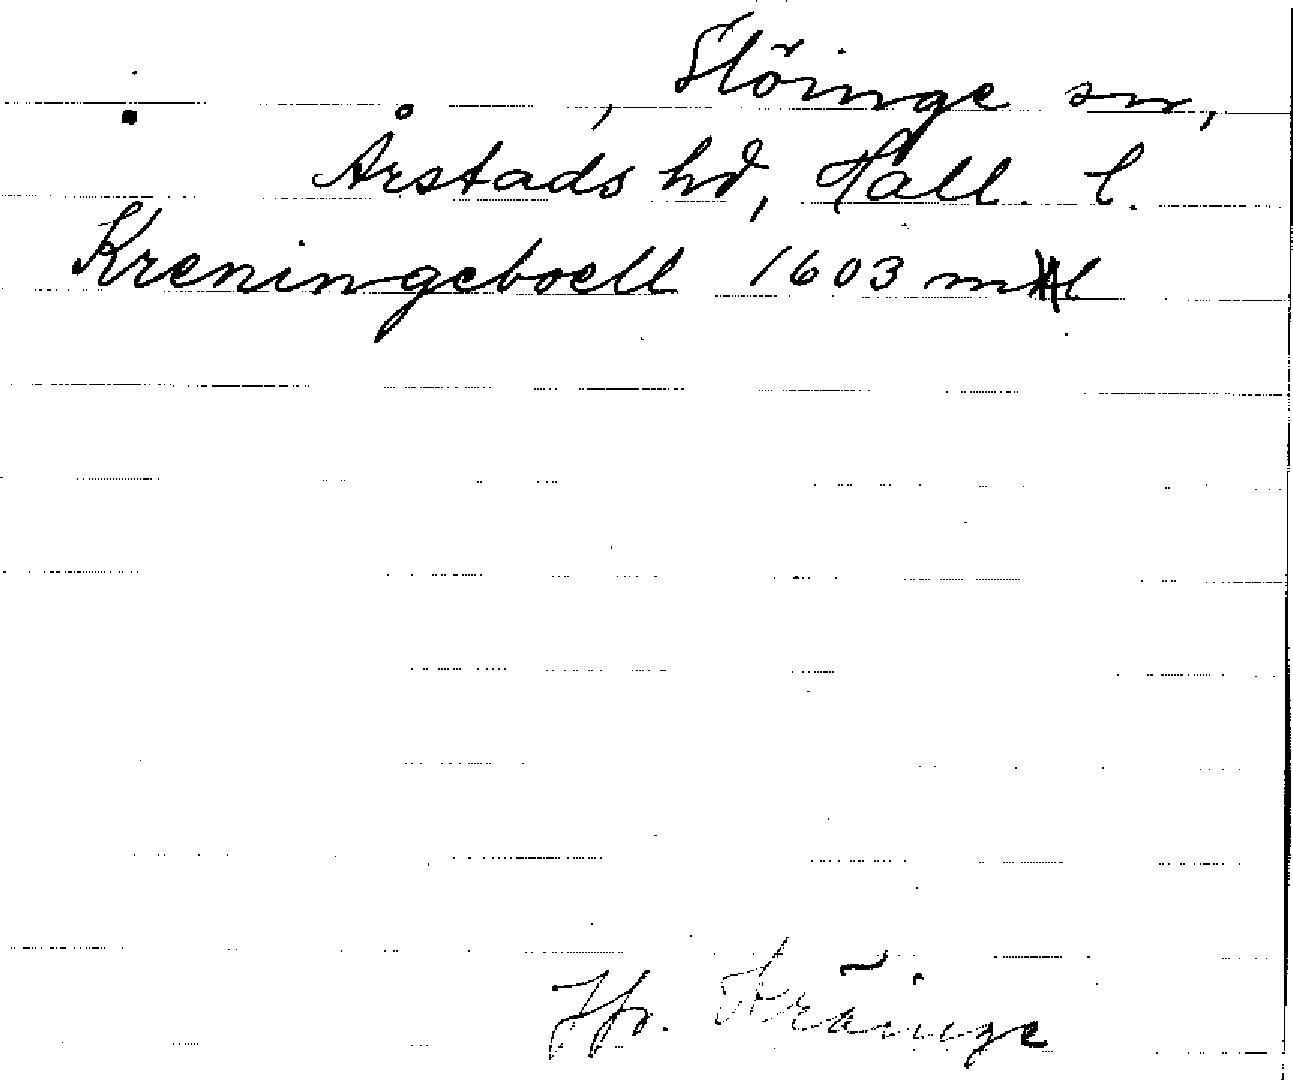 , Slöinge sn,
Årstads hd, Hall. l.
Kreningeboell 1603 mtl
Jfr. Kräinge